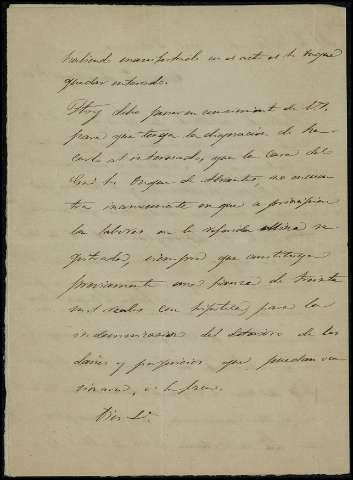 habiendo manifestado en el acto el Sr. Duque
quedar enterado.
Hoy debo poner en conocimiento de V.S.
para que tenga la dignacion de ha-
cerlo al interesado, que la Casa del
Exmo Sr. Duque de Abrantes, no encuen-
tra inconveniente en que se principien
las labores en la referida Mina re-
gistrada, siempre que constituya
previamente una fianza de treinta
mil reales con hipoteca, para la
indemnizacion del deterioro de los
daños y perjuicios que puedan oca-
sionarse, a la finca.
Dios &.